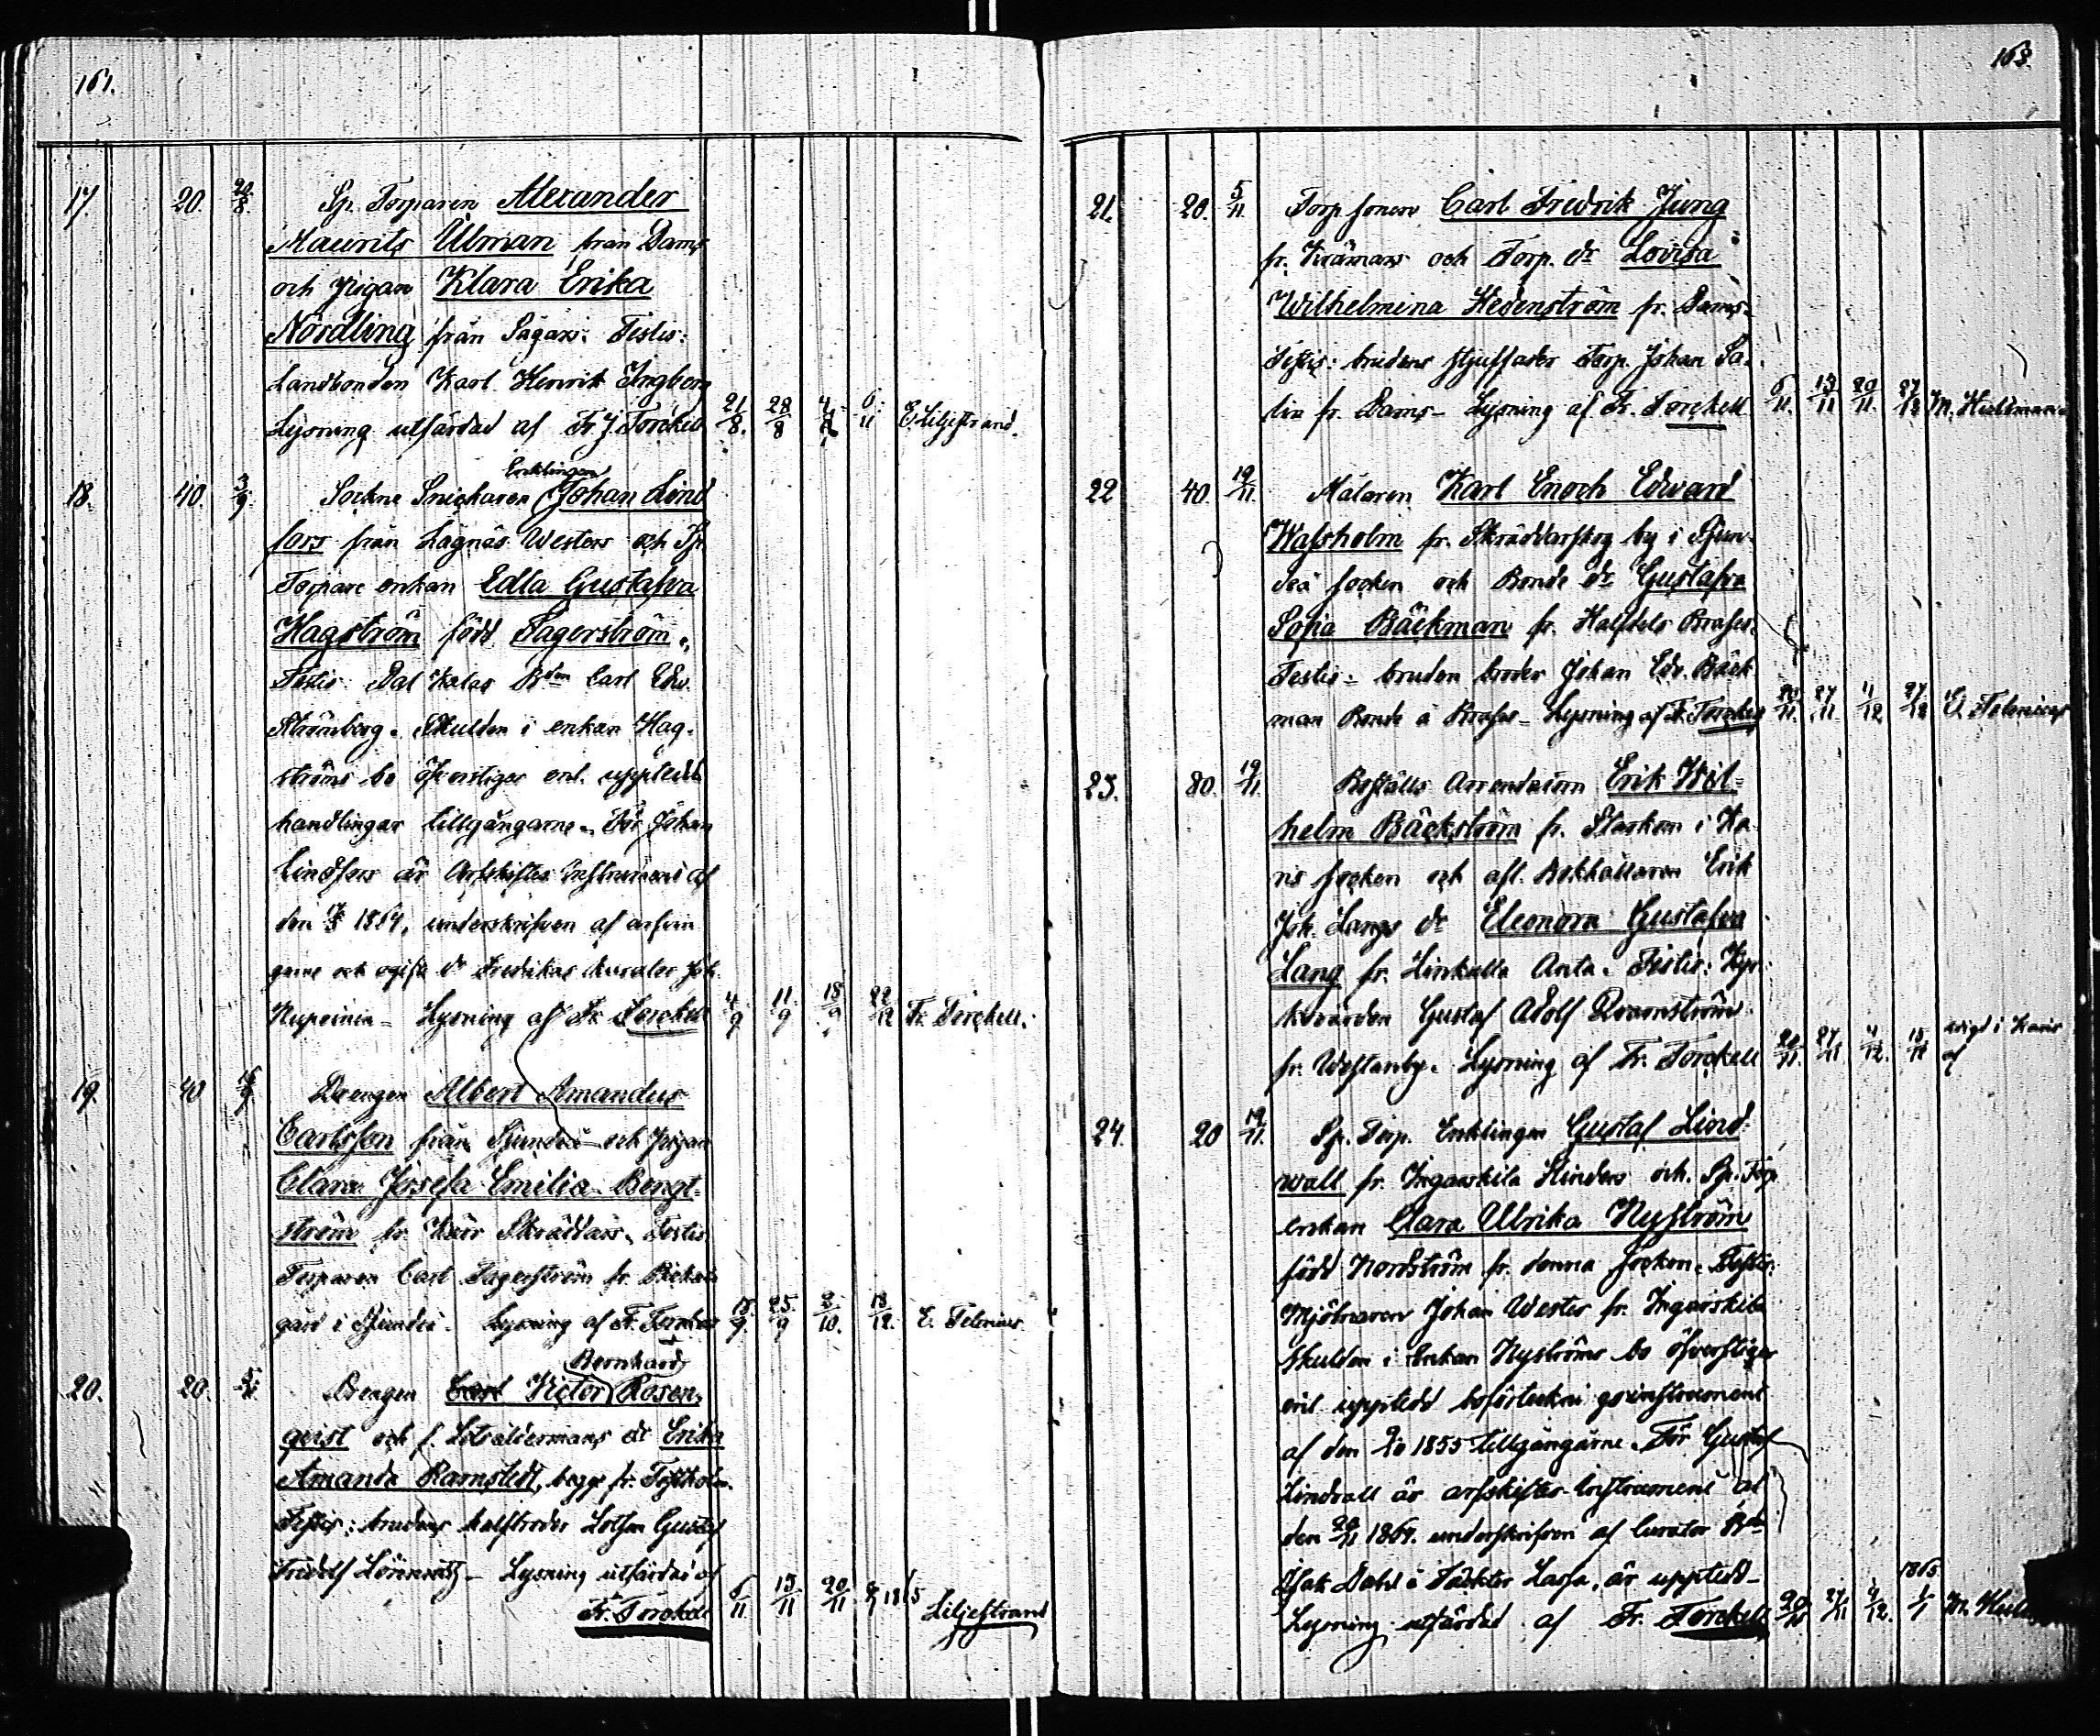 161.
17. 20. 20/8. Sp. Torparen Alexander
Maurits Ulman från Dams
och Pigan Klara Erika
Nordling från Sågars. Testis:
Landbonden Karl Henrik Engberg
Lysning utfärdad af Fr. J. Torckell 21/8. 28/8 4/9 6/11 E. Liljestrand.
Enklingen
18. 40. 3/9. Sockne Snickaren Johan Lind
fors från Lågnäs Westers och Sp.
Torpare enkan Edla Gustafva
Hagström född Lagerström.
Testis: Dal Kalas Bdn Carl Edv.
Strömberg. Skulden i enkan Hag-
ströms bo öfverstiger enl. upptedda
handlingar tillgångarne. För Johan
Lindfors är Arfskiftes Instrument af
den 1864, underskrifven af arfvin
garne och ogifta dr Fredrikas kurator Joh.
Lysning af Fr. Torckell 4/9 11/9 18/9 22/12 Fr. Torckell.
19. 40 Drengen Albert Amandus
Carlsson från Sjundeå och Pigan
Clara Josefa Emilia Bengt-
ström fr. Kärr Skräddars. Testis
Torparen Carl Lagerström fr.
gård i Sjundeå. Lysning af Fr. Torckell 18/9. 25/9 2/10. 18/12. E. Telenius.
Bernhard
20. 20. Drengen Carl Victor Rosen-
qvist och f. Lotsåldermans dr Erika
Amanda Ramstedt, begge fr.
Testis: brudens halfbroder Lotsen Gustaf
Fridolf Lönnqvist Lysning utfärdad af
Fr. Torckell 6/11 13/11 20/11 1865 Liljestrand
163.
21. 20. 5/11. Torp sonen Carl Fredrik Jung
fr. Krämars och Torp. dr Lovisa
Wilhelmina Hedenström fr. Dams-
Testis: brudens styffader Torp. Johan Sa-
lin fr. Dams- Lysning af Fr. Torckell 6/11. 13/11 20/11. 27/12 M. Hultman
22 40. 19/11. Målaren Karl Enoch Edvard
Wassholm fr. Skräddarskog by i Sjun-
deå socken och Bonde dr Gustafva
Sofia Bäckman fr. Halfdels
Testis: bruden broder Johan Edv. Bäck
man Bonde å Lysning af Fr. Torckell 20/11. 27/11. 4/12 27/12 E. Telenius
23. 80. 19/11. Boställs Arrendatorn Erik Wil-
helm Bäckström fr. Starkom i Ka-
ris socken och afl. Bokhållaren Erik
Joh. Langs dr Eleonora Gustafva
Lang fr. Linkulla Anta. Testis: Kyr-
kovärden Gustaf Adolf Qvarnström
fr. Westanby. Lysning af Fr. Torckell 20/11. 27/11 4/12. vigd i Karis
af
24. 20 19/11. Sp. Torp. Enklingen Gustaf Lind-
wall fr. Ingarskila Slinders och Sp. Torp
enkan Clara Ulrika Nyström
född Nordström fr. denna Socken. Testis:
Mjölnaren Johan Wester fr. Ingarskila
Skulden i Enkan Nyströms bo öfverstiger
enl. upptedd boförtecknings instrument
af den 1855 tillgångarne. För Gustaf
Lindvall är arfskiftes Instrument af
den 20/11 1864. underskrifven af Curator Bdn
Isak Dahl å Täckter Lassa, är upptedd-
Lysning utfärdad af Fr. Torckell 20/11 27/11 4/12. 1865 1/1 M. Hult